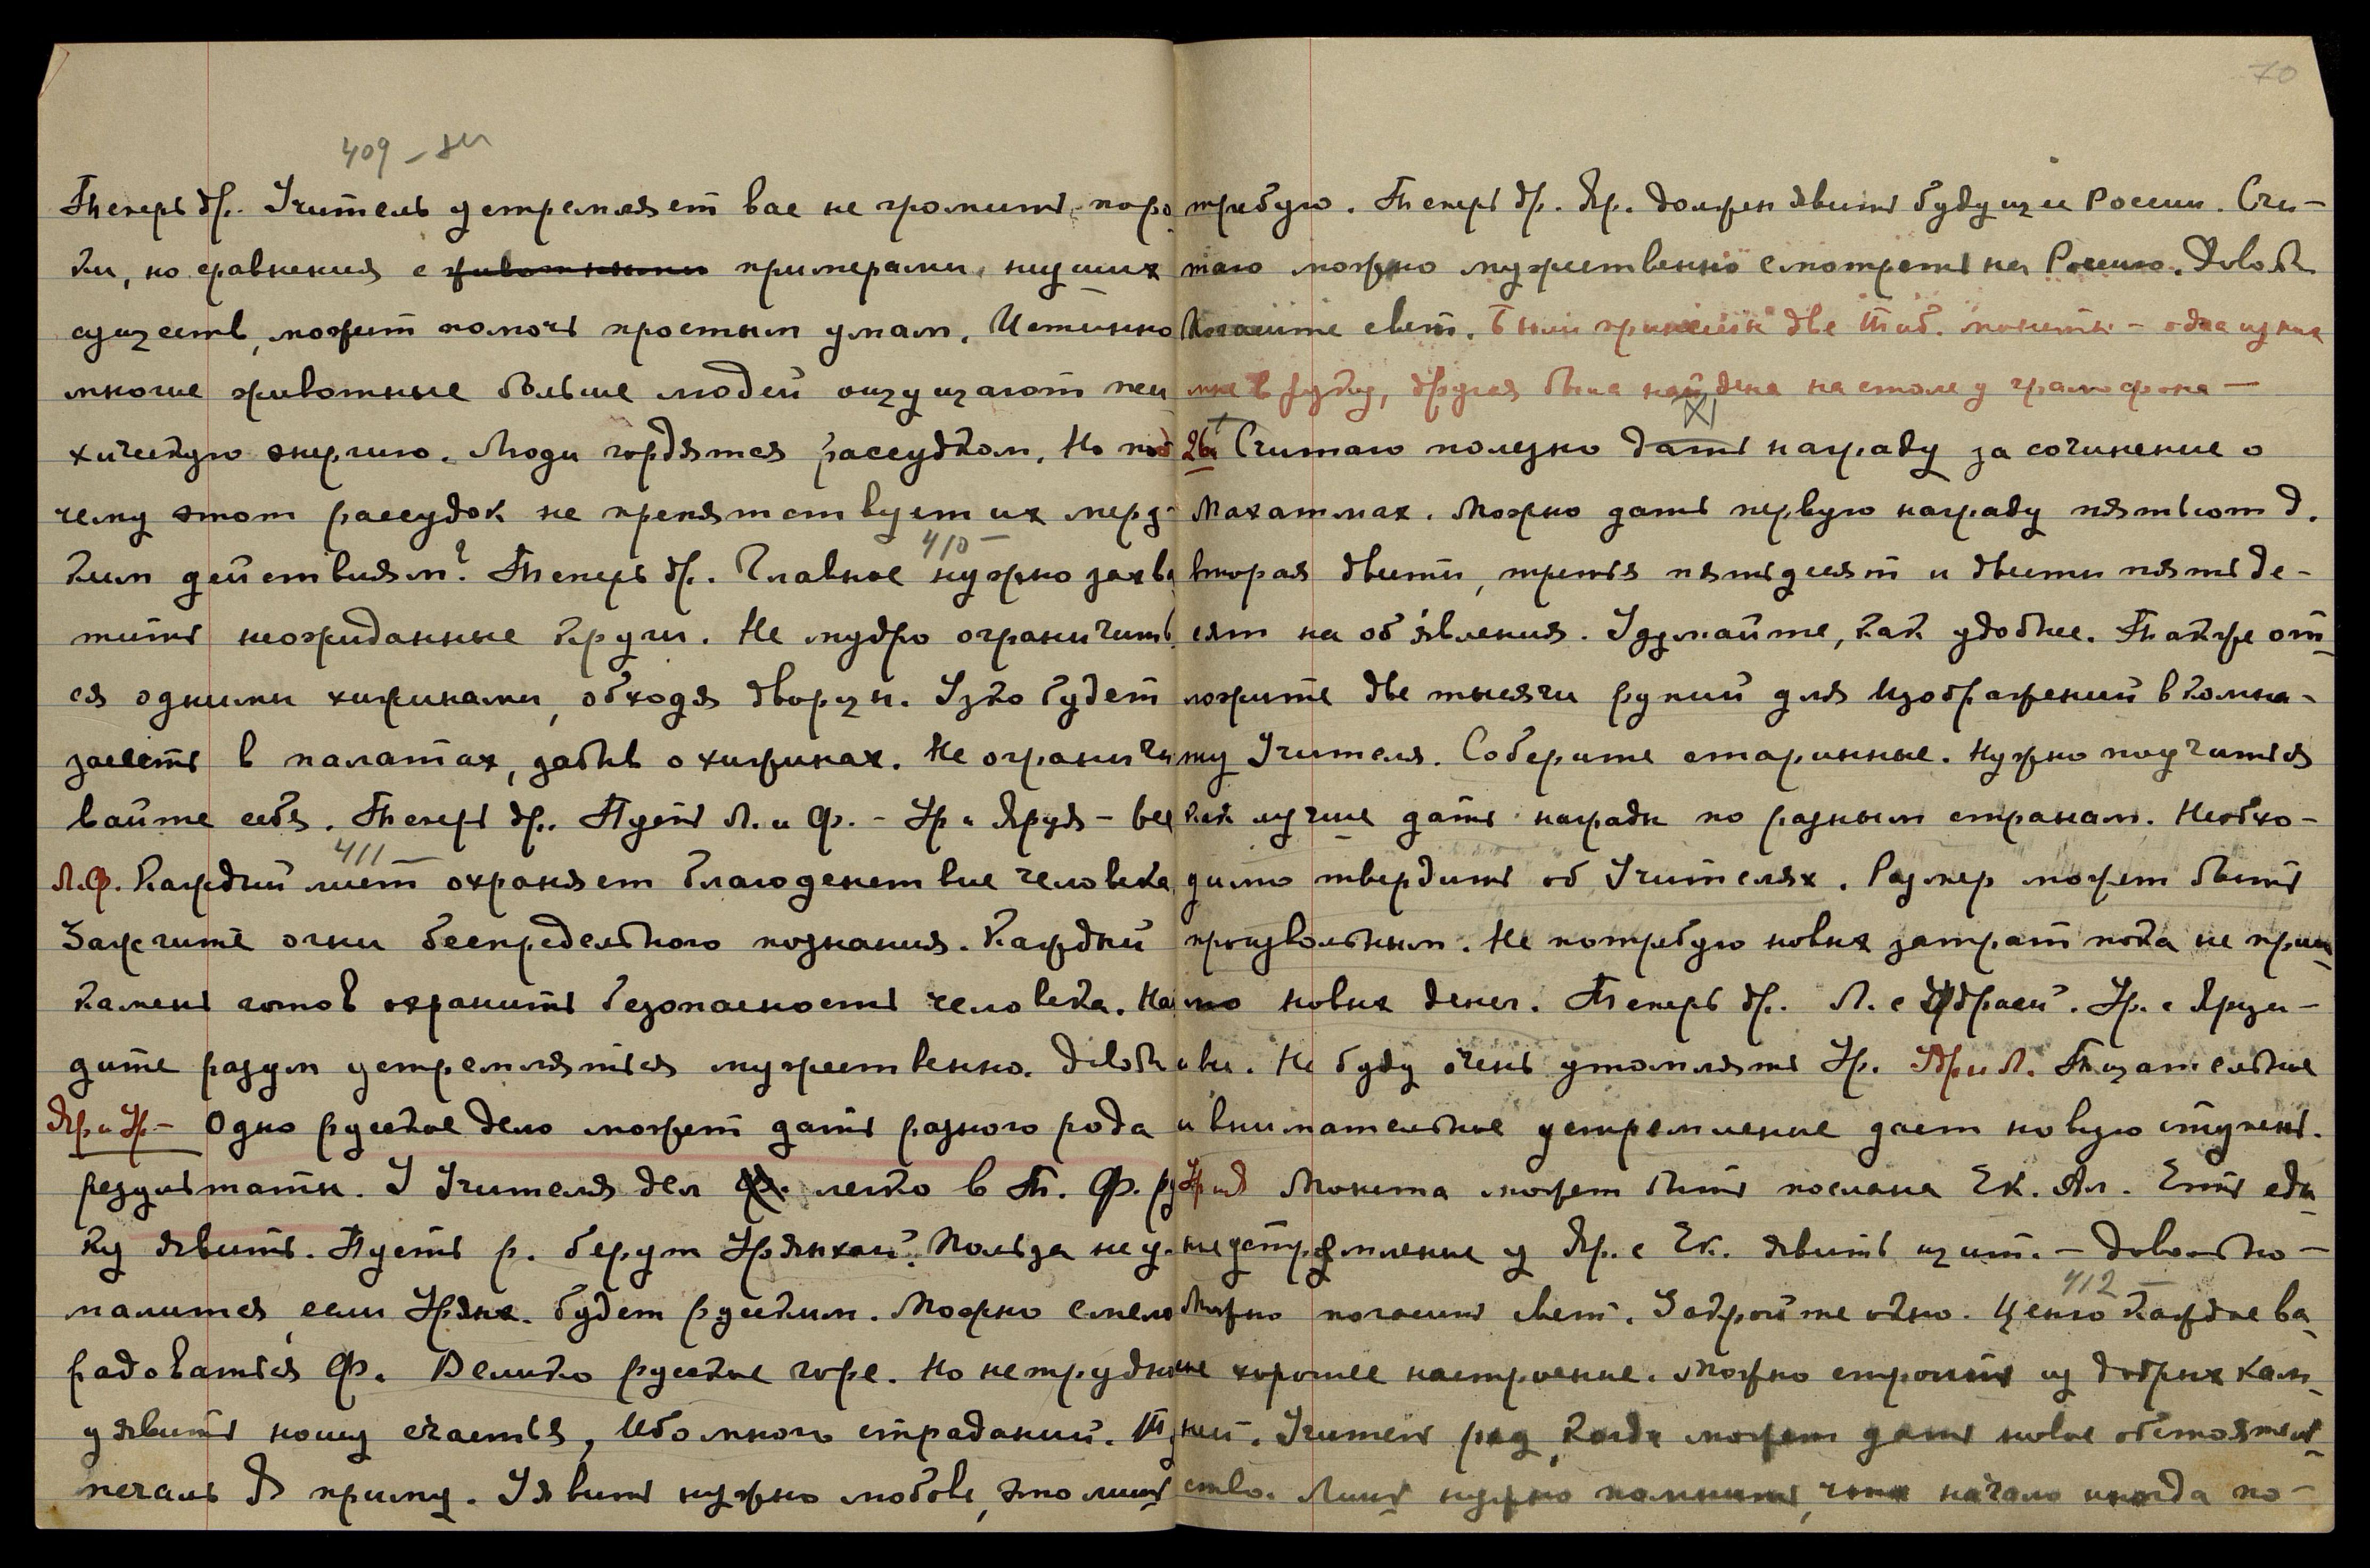 409 –
Теперь др. Учитель устремляет вас не громить поро
ки, но сравнения с животными примерами низших
существ, может помочь простым умам. Истинно
многие животные больше людей ощущают пси
хическую энергию. Люди гордятся рассудком. Но по
чему этот рассудок не препятствует их мерз-
410 –
ким действиям? Теперь др. Главное нужно захва
тить неожиданные круги. Не мудро ограничить
ся одними хижинами, обходя дворцы. Узко будет
засесть в палатах, забыв о хижинах. Не ограничи
вайте себя. Теперь др. Пусть Л. и Ф. – Ур. и Яруя – все
411 –
Л.Ф. Каждый лист охраняет благоденствие человека
Зажгите огни беспредельного познания. Каждый
камень готов охранить безопасность человека. На
дите разум устремляться мужественно. Доволь
Яр и Ур – Одно русское дело может дать разного рода
результаты. У Учителя дел Ф. легко в Т. Ф. ру
ку явить. Пусть р. берут Урянхай. Польза не у-
малится, если Урянх. будет русским. Можно смело
радоваться Ф. Велико русское горе. Но не трудно
уявить ношу счастья, Ибо много страданий.
печаль Я приму. Уявить нужно любовь, это лишь
70
требую. Теперь др. Яр. должен явить будущее России. Счи-
таю можно мужественно смотреть на Россию. Доволь
Погасите свет. Были принесены две Тиб. монеты – одна из них
мне в руку, другая была найдена на столе у грамофона –
XI
26 Считаю полезно дать награду за сочинение о
Махатмах. Можно дать первую награду пятьсот д.
вторая двести, третья пятьдесят и двести пятьде-
сят на объявления. Удумайте, как удобнее. Также от
ложите две тысячи рупий для Изображений в комна-
ту Учителя. Соберите старинные. Нужно поучиться
как лучше дать награды по разным странам. Необхо-
димо твердить об Учителях. Размер может быть
произвольным. Не потребую новых затрат пока не при
новых денег. Теперь др. Л. с Удраей. Ур. с Яруи-
ей. Не буду очень утомлять Ур. Яр и Л. Тщательное
и внимательное устремление дает новую ступень.
Ур и Я Монета может быть послана Ек. Ал. Есть еди
ное устремление у Яр. с Ек. явить щит. – Довольно –
412 –
Можно погасить свет. Закройте окно. Ценю каждое ва
ше хорошее настроение. Можно строить из добрых кам
ней. Учитель рад, когда может дать новые обстоятель
ство. Лишь нужно помнить, что начало иногда по-